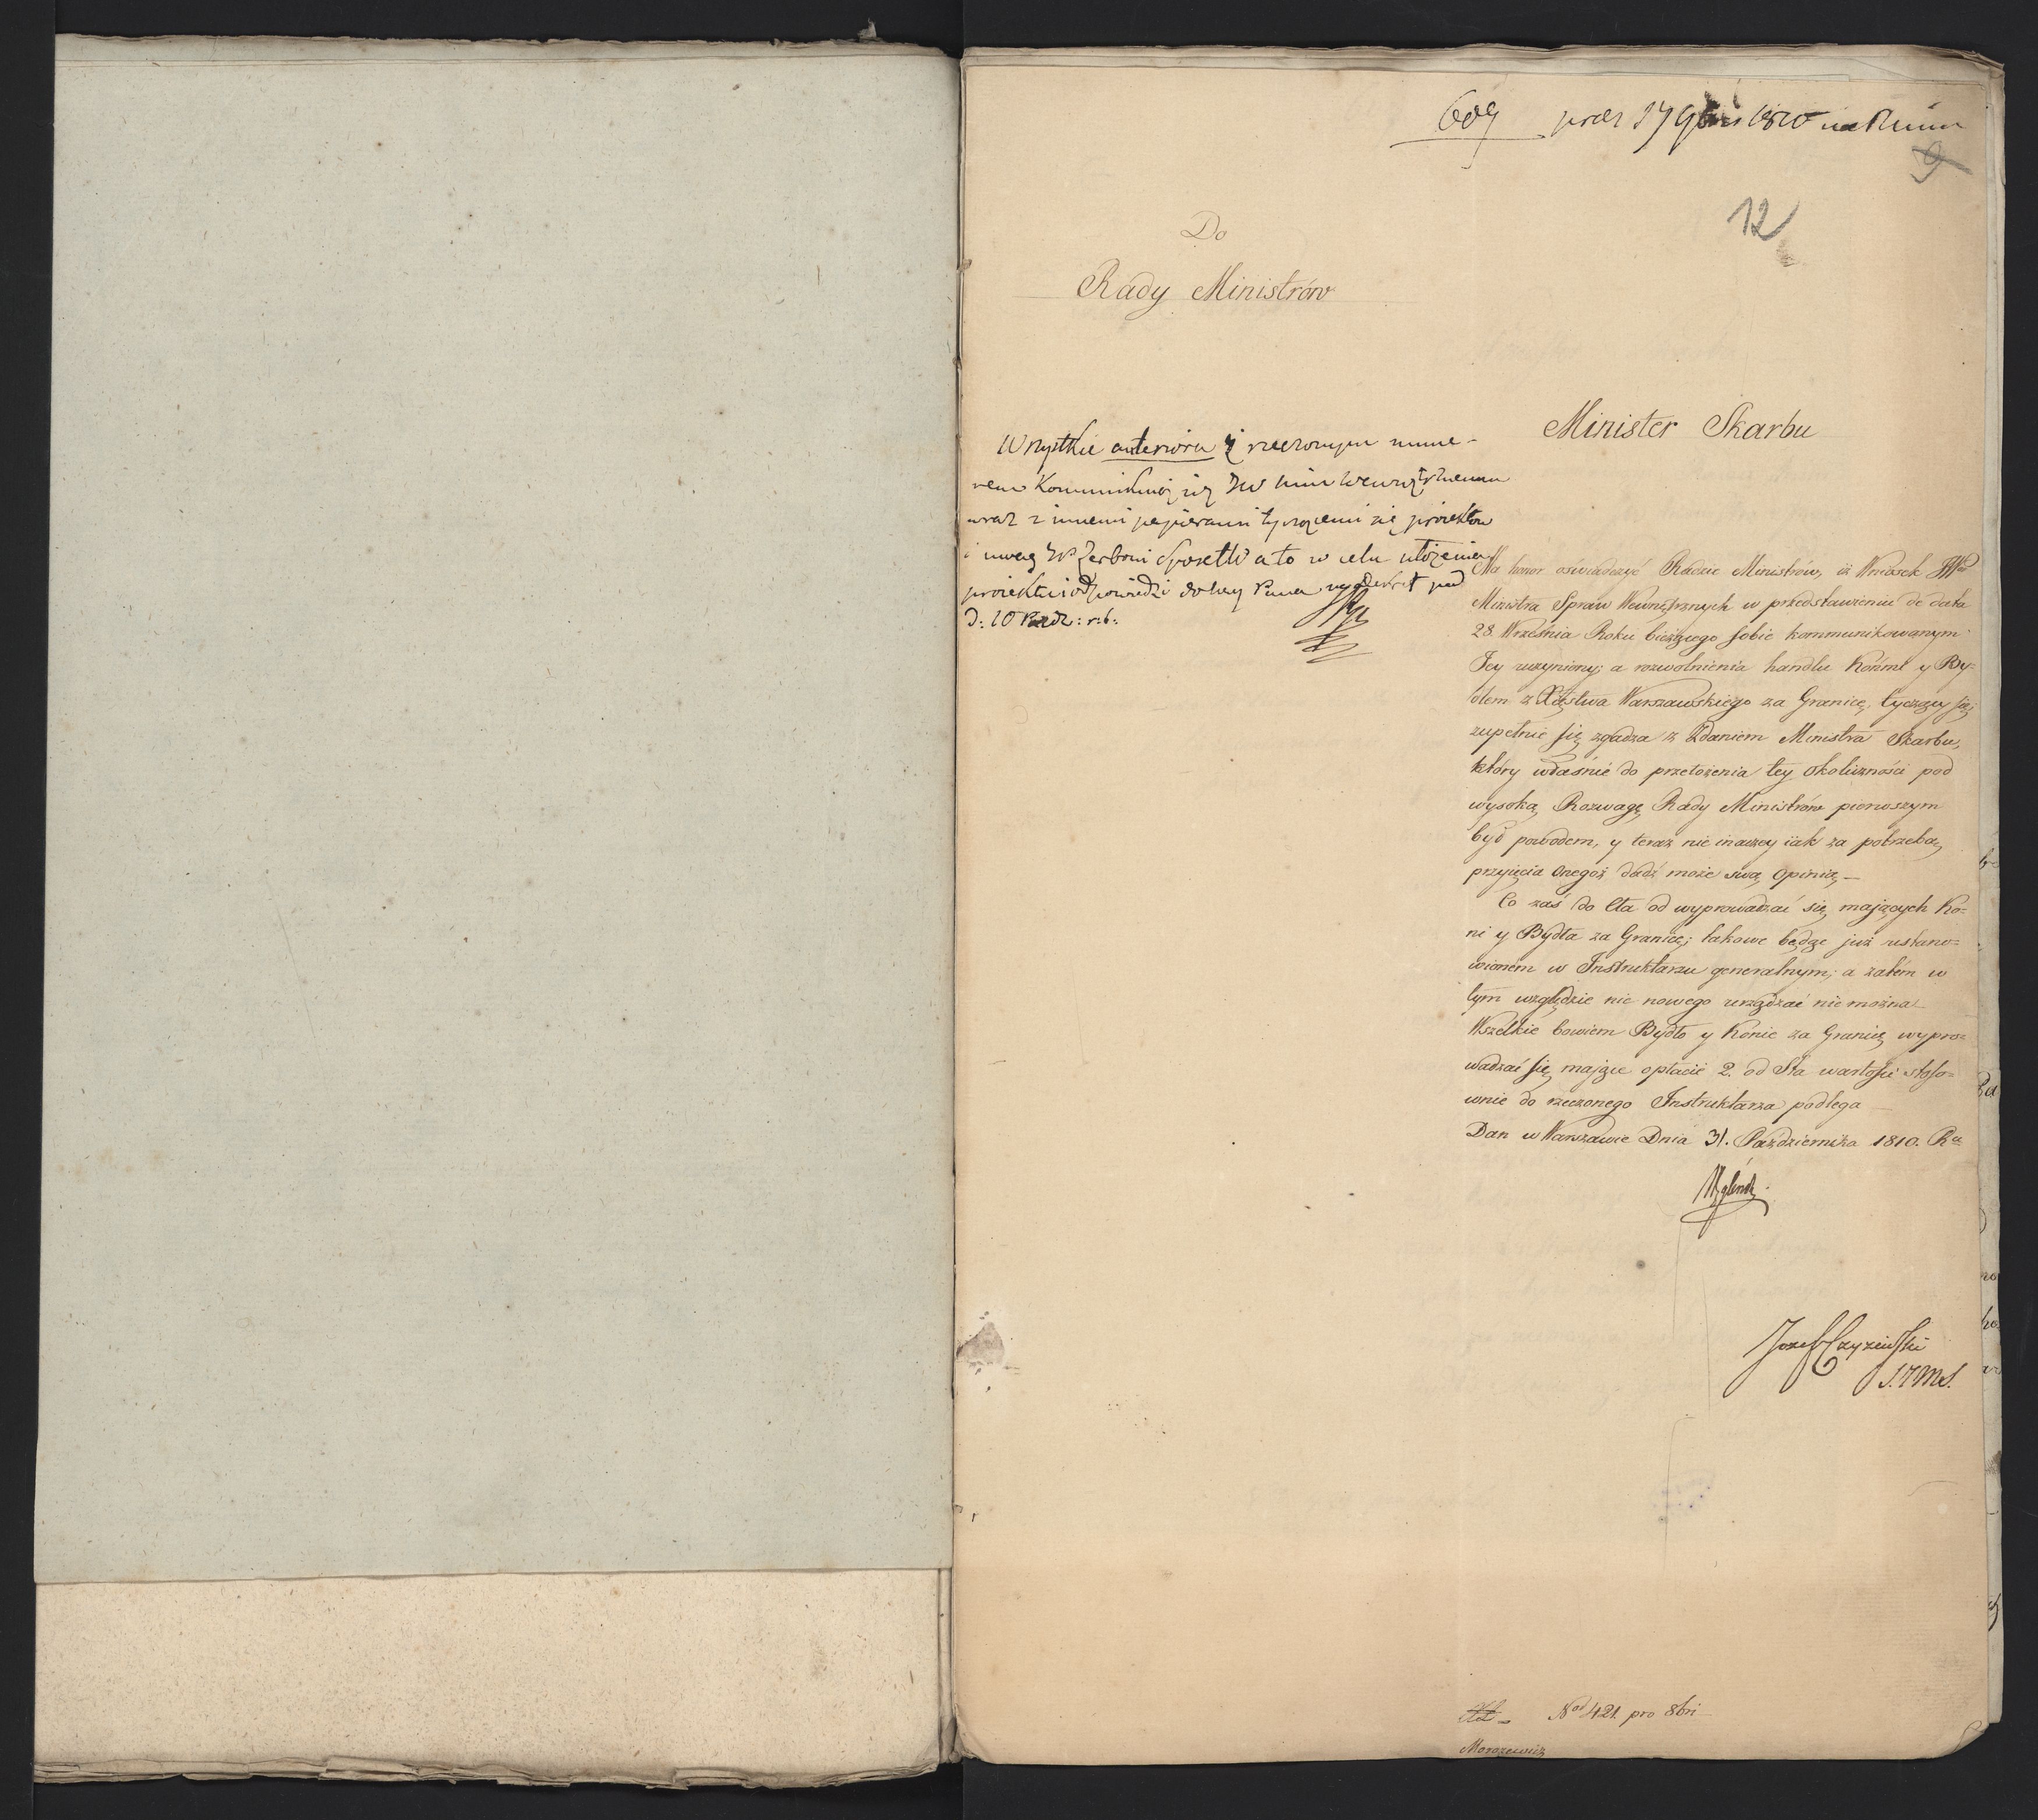 609
9
12
Do
Rady Ministrów
Wszystkie anteriora z rzeczonym nume-
rem
wraz z innemi papierami tyczącemi się projektów
i uwag a to w celu ułożenia
projektu i odpowiedzi pod
d: 10 Paźdz: r: b:
Minister Skarbu
Ma honor oświadczyć Radzie Ministrów, iż Wniosek JW
Ministra Spraw Wewnętrznych w przedstawieniu de dato
28. Września Roku bieżącego sobie kommunikowanym
Jey uczyniony; a rozwolnienia handlu Końmi y By=
dłem z Xięstwa Warszawskiego za Granicę, tyczący się;
zupełnie się zgadza z Zdaniem Ministra Skarbu,
który właśnie do przełożenia tey okoliczności pod
wysoką Rozwagę Rady Ministrów pierwszym
był powodem, y teraz nie inaczey iak za potrzebą
przyięcia onegoż dadź może swą Opinią,—
Co zaś do Cła od wyprowadzać się mających Ko=
ni y Bydła za Granicę; takowe będąc już ustano=
wionem w Instruktarzu generalnym; a zatém w
tym względzie nic nowego urządzać nie można—
Wszelkie bowiem Bydło y Konie za Granicę wypro=
wadzać się mające opłacie 2. od Sta wartości stoso=
wnie do rzeczonego Instruktarza podlega—
Dan w Warszawie Dnia 31. Października 1810. Ru
Węgleński
Jozef Czyżewski
No 421. pro 8bri
Morozewicz